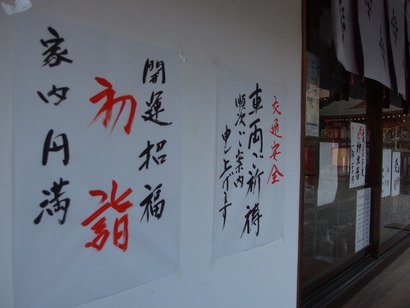 開運招福
初詣
家内円満
交通安全
車両ご祈祷
順次ご案内
申し上げます